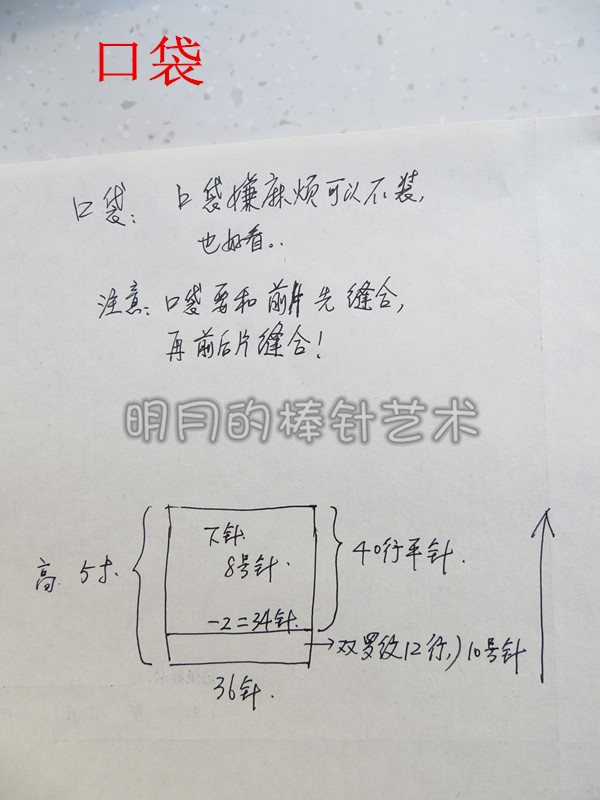 口袋
口袋: 口袋嫌麻烦可以不装,
也好看..
注意: 口袋要和前片先缝合,
再前后片缝合!
明月的棒针艺术
下针
8号针.
40行平针.
高 5寸.
-2=34针.
双罗纹12行,) 10号针
36针.